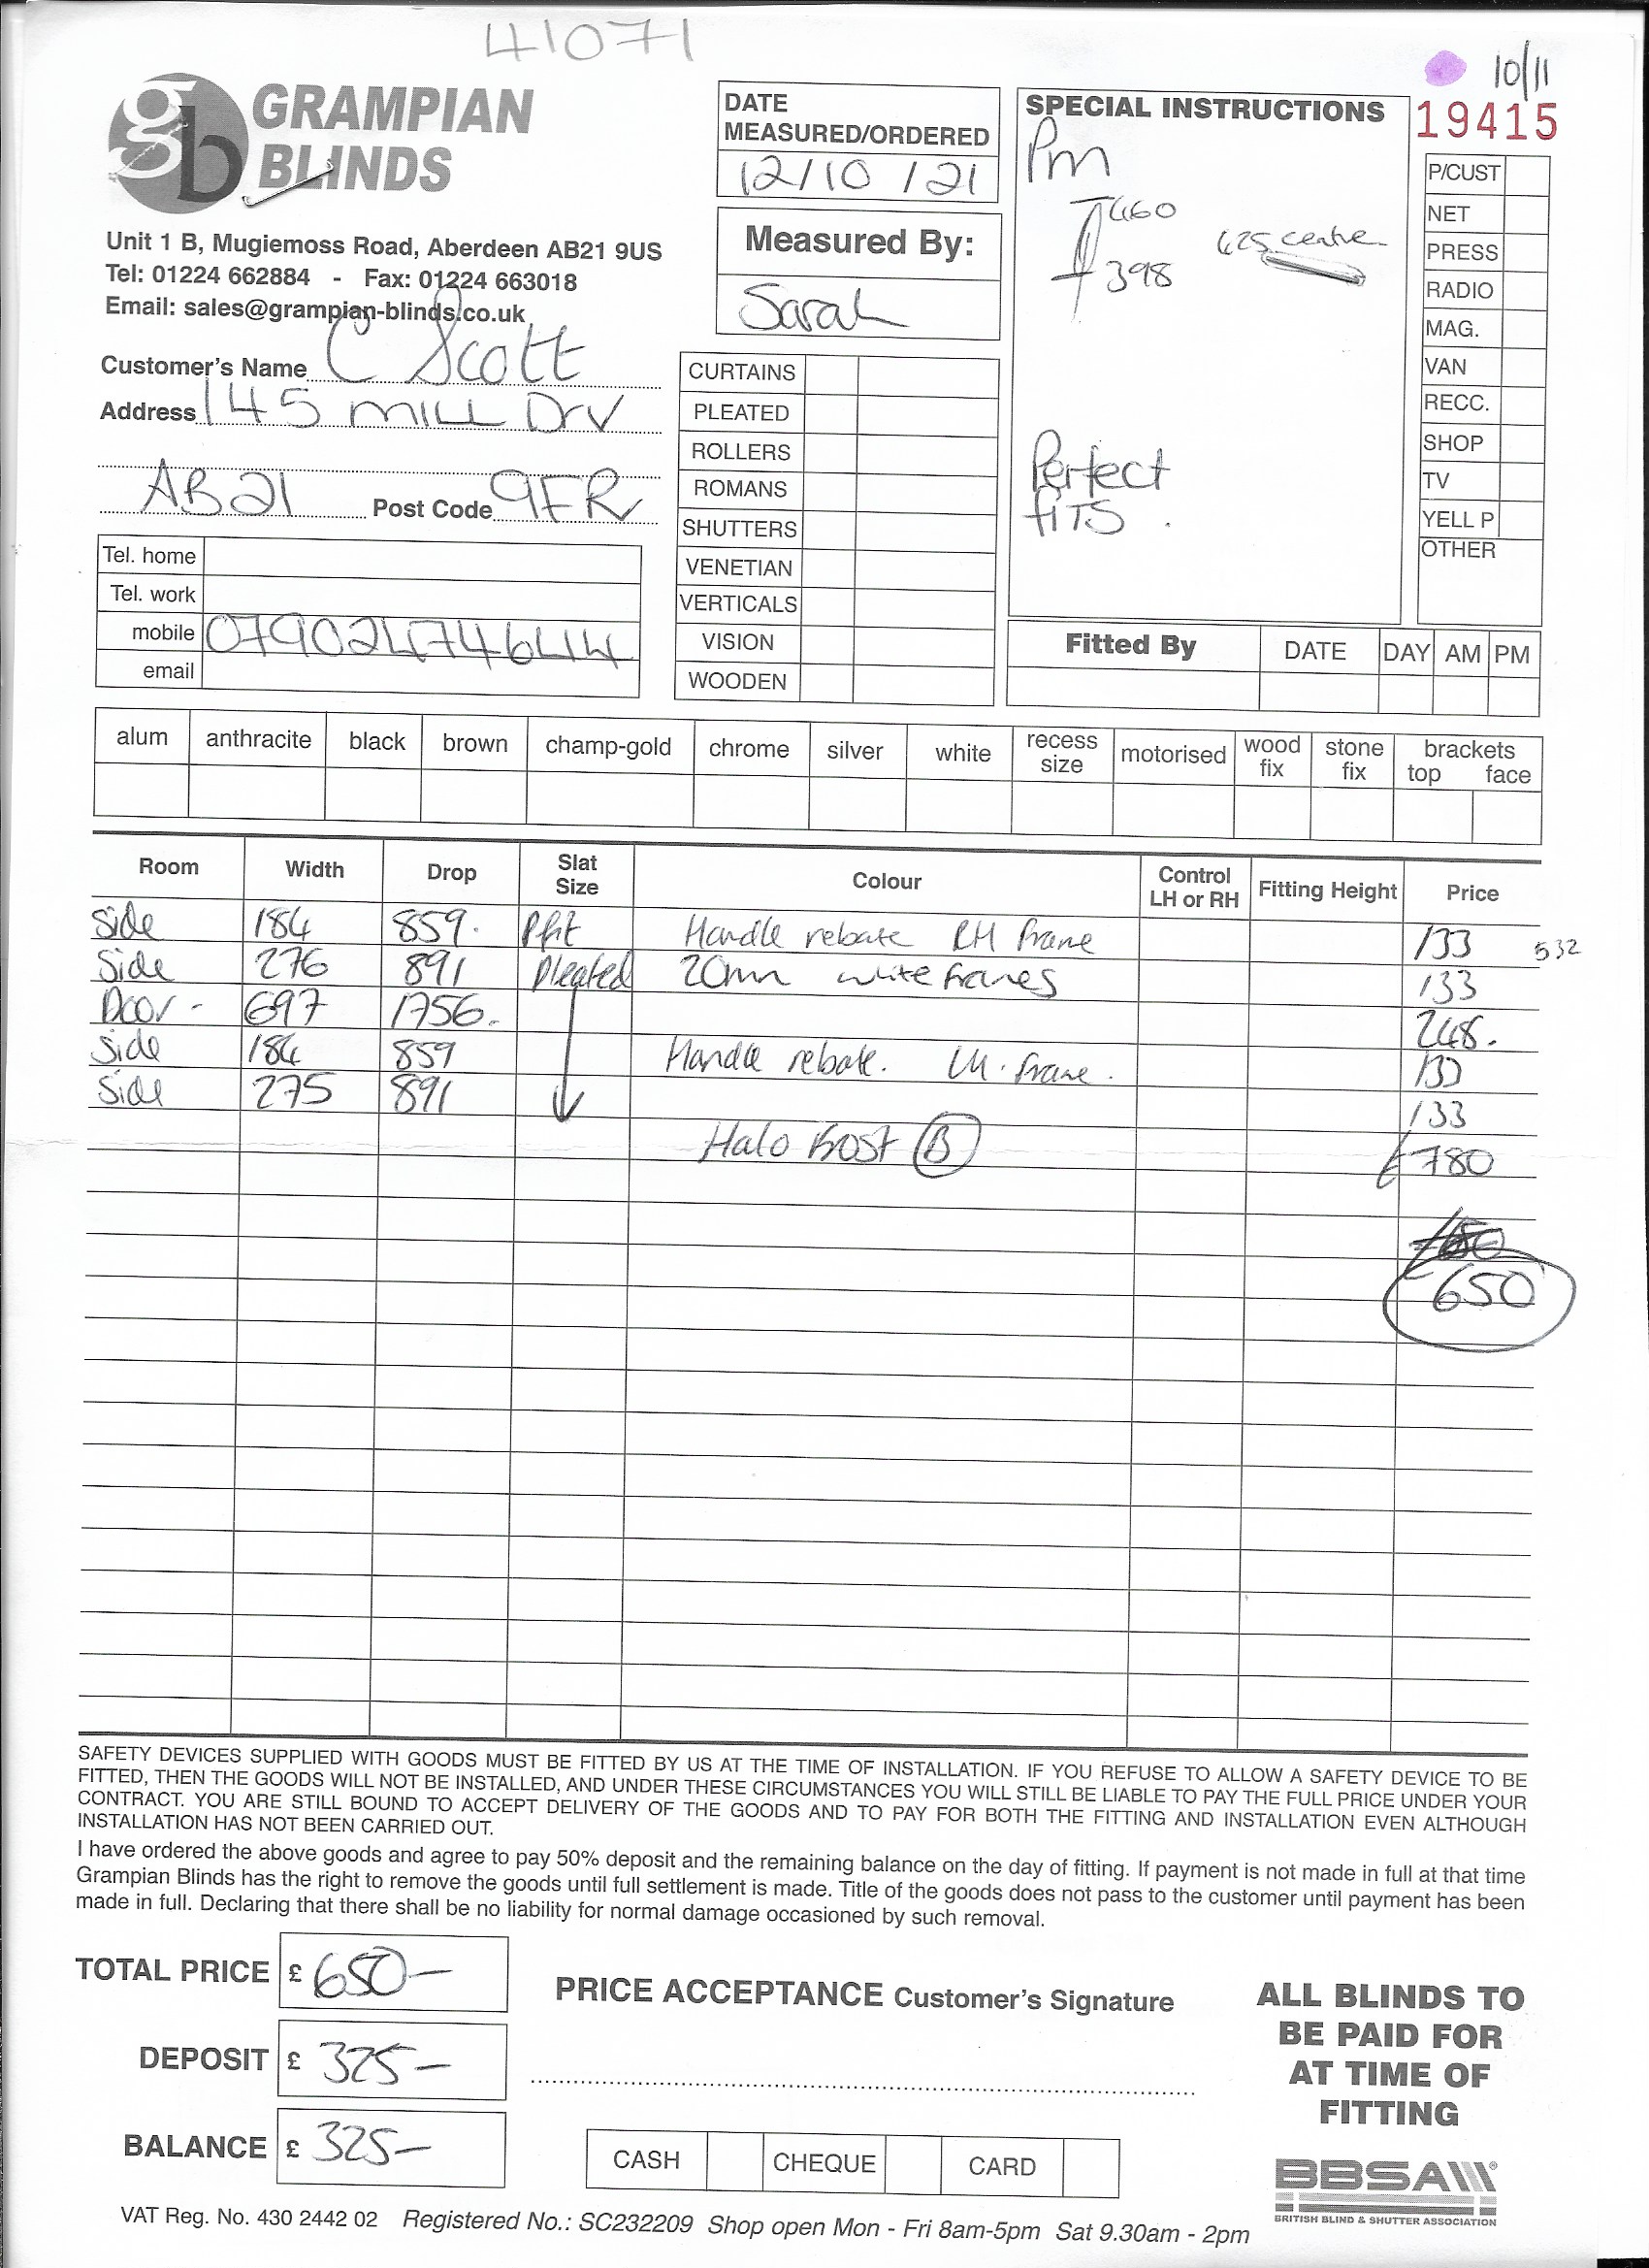 41071
10/11
19415
GRAMPIAN
BLINDS
Unit 1 B, Mugiemoss Road, Aberdeen AB21 9US
Tel: 01224 662884 - Fax: 01224 663018
Email: sales@grampian-blinds.co.uk
Customer's Name C Scott
Address 145 MILL Drv
AB21 Post Code 9FR
Tel. home
Tel. work
mobile 07902474644
email
DATE
MEASURED/ORDERED
12/10/21
Measured By:
Sarah
CURTAINS
PLEATED
ROLLERS
ROMANS
SHUTTERS
VENETIAN
VERTICALS
VISION
WOODEN
SPECIAL INSTRUCTIONS
Pm
460
625 centre
398
Perfect
fits.
P/CUST
NET
PRESS
RADIO
MAG.
VAN
RECC.
SHOP
TV
YELL P
OTHER
Fitted By DATE DAY AM PM
alum anthracite black brown champ-gold chrome silver white recess size motorised wood fix stone fix brackets top face
Room Width Drop Slat Size Colour Control LH or RH Fitting Height Price
Side 184 859. Pfit Handle rebate RH frame 133 532
Side 276 891 Pleated 20mm white frames 133
Door - 697 1756. 248.
Side 184 859 Handle rebate. LH. frame. 133
Side 275 891 133
Halo B £780
650
SAFETY DEVICES SUPPLIED WITH GOODS MUST BE FITTED BY US AT THE TIME OF INSTALLATION. IF YOU REFUSE TO ALLOW A SAFETY DEVICE TO BE
FITTED, THEN THE GOODS WILL NOT BE INSTALLED, AND UNDER THESE CIRCUMSTANCES YOU WILL STILL BE LIABLE TO PAY THE FULL PRICE UNDER YOUR
CONTRACT. YOU ARE STILL BOUND TO ACCEPT DELIVERY OF THE GOODS AND TO PAY FOR BOTH THE FITTING AND INSTALLATION EVEN ALTHOUGH
INSTALLATION HAS NOT BEEN CARRIED OUT.
I have ordered the above goods and agree to pay 50% deposit and the remaining balance on the day of fitting. If payment is not made in full at that time
Grampian Blinds has the right to remove the goods until full settlement is made. Title of the goods does not pass to the customer until payment has been
made in full. Declaring that there shall be no liability for normal damage occasioned by such removal.
TOTAL PRICE £ 650-
DEPOSIT £ 325-
BALANCE £ 325-
PRICE ACCEPTANCE Customer's Signature
CASH CHEQUE CARD
ALL BLINDS TO
BE PAID FOR
AT TIME OF
FITTING
BBSA
BRITISH BLIND & SHUTTER ASSOCIATION
VAT Reg. No. 430 2442 02 Registered No.: SC232209 Shop open Mon - Fri 8am-5pm Sat 9.30am - 2pm